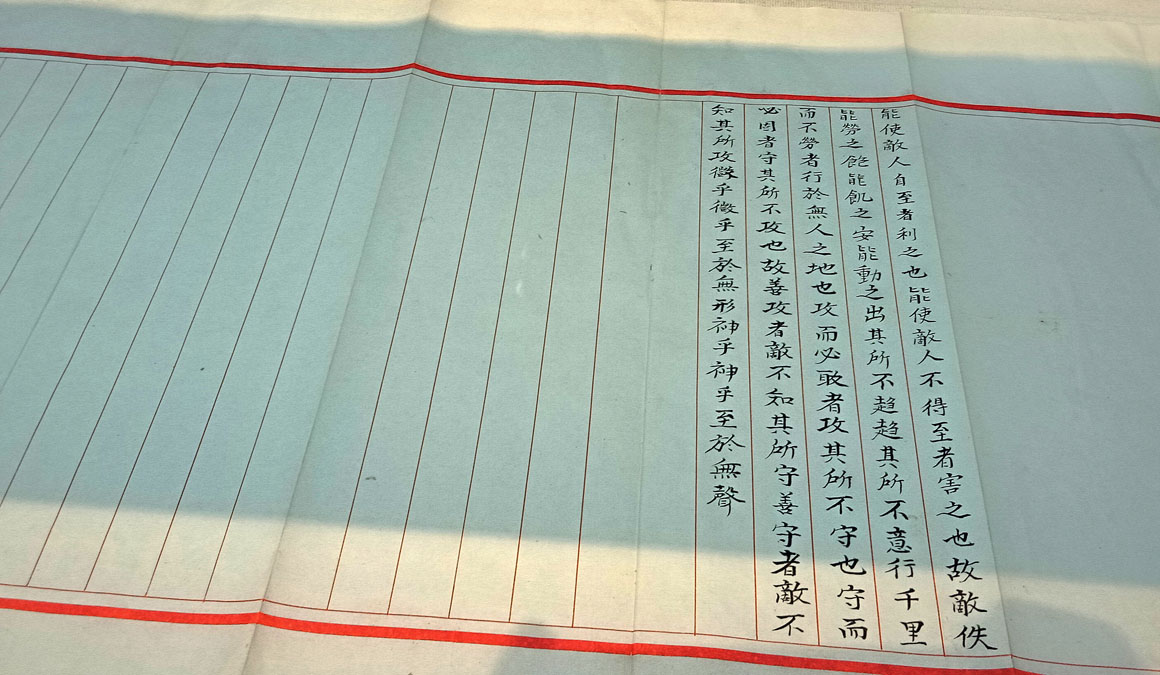 能使敵人自至者利之也能使敵人不得至者害之也故敵佚
能勞之飽能飢之安能動之出其所不趨趨其所不意行千里
而不勞者行於無人之地也攻而必敢者攻其所不守也守而
必固者守其所不攻也故善攻者敵不知其所守善守者敵不
知其所攻微乎微乎至於無形神乎神乎至於無聲